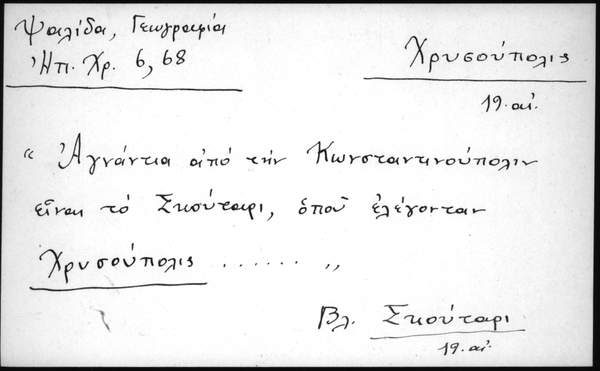 Ψαλίδα, Γεωγραφία
Ἠπ. Χρ. 6, 68
Χρυσούπολις
19. αἰ.
“ Ἀγνάντια ἀπό τήν Κωνσταντινούπολιν
εἶναι τό Σκούταρι, ὁποῦ ἐλέγονταν
Χρυσούπολις ...... „
Βλ. Σκούταρι
19. αἰ.